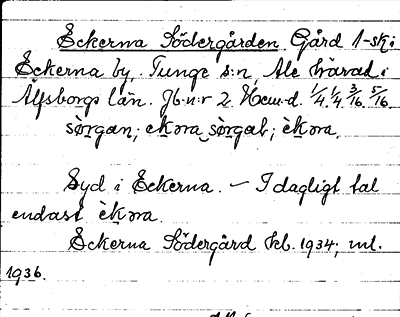 Eckerna Södergården Gård 1-sk i
Eckerna by, Tunge s:n, Ale härad i
Älfsborgs län. Jb.n:r 2. Hem.d. 1/4. 1/4. 3/16. 5/16.
sörgan; èkora sörgal; èkora.
Syd i Eckerna. – I dagligt tal
endast èkora.
Eckerna Södergård kb. 1934; ml.
1936.